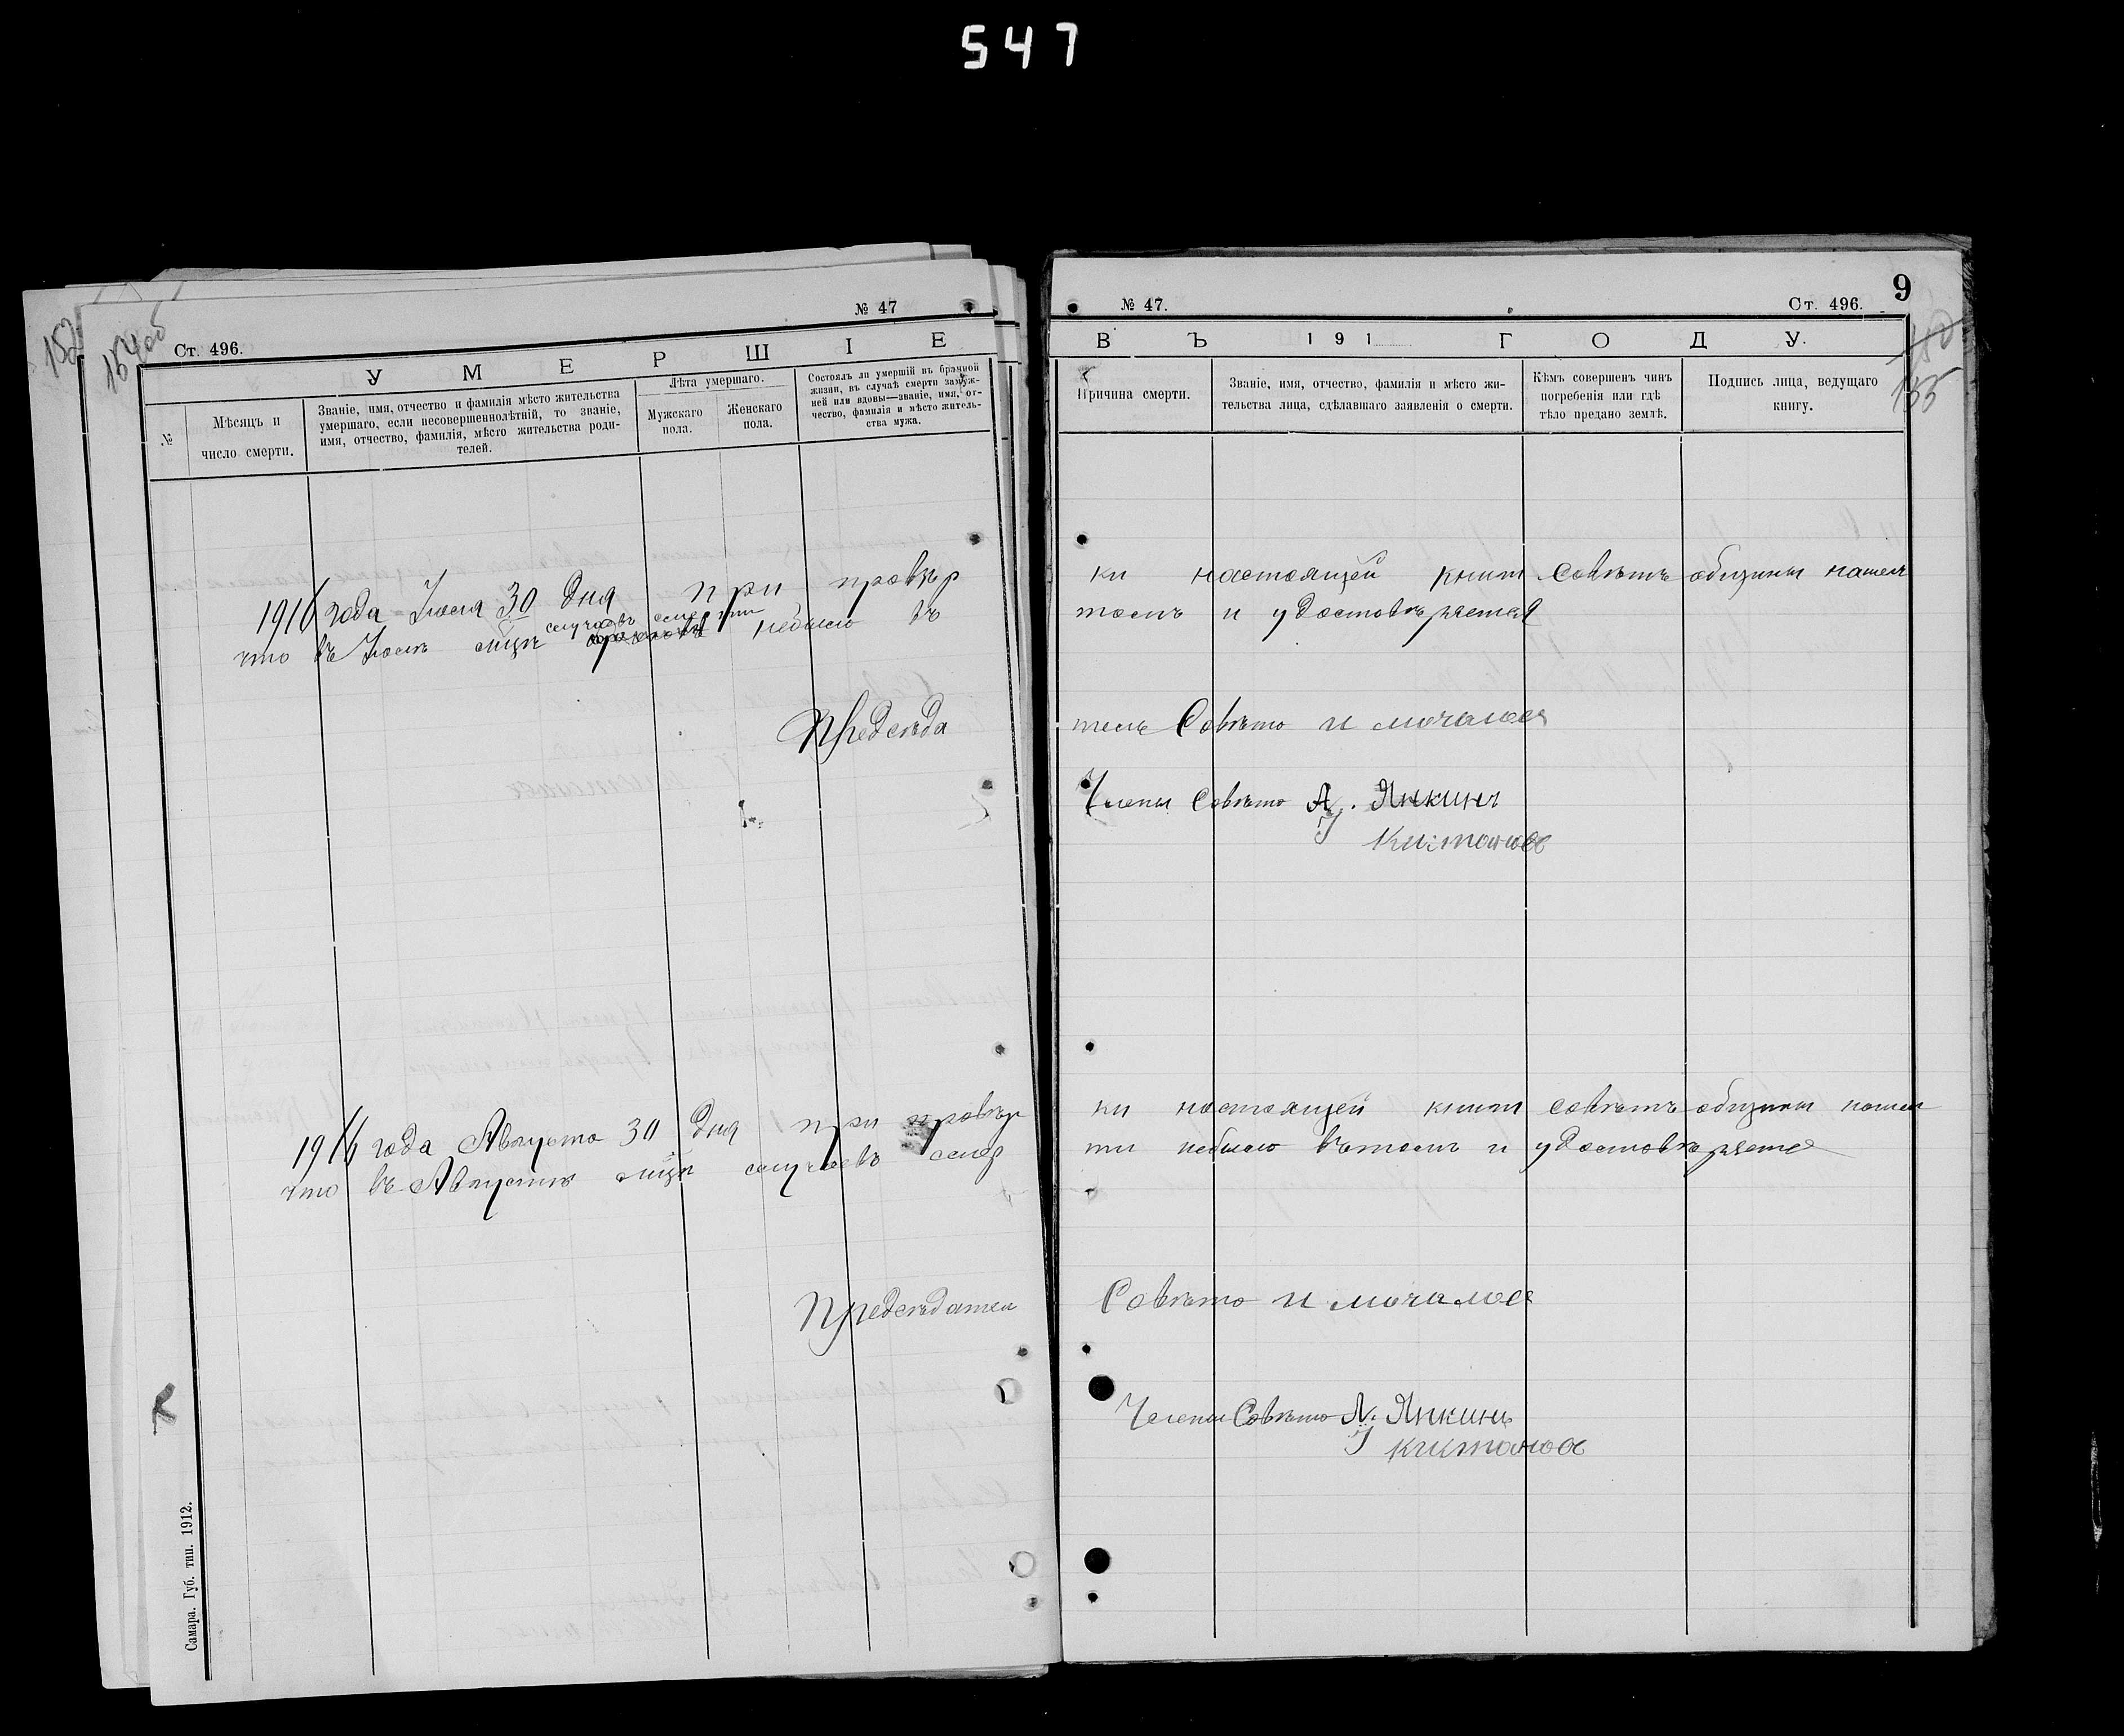 547
№ 47
Ст. 496.
УМЕРШІЕ
№
Мѣсяцъ и
число смерти.
Званіе, имя, отчество и фамилія мѣсто жительства
умершаго, если несовершеннолѣтній, то званіе,
имя, отчество, фамилія, мѣсто жительства роди-
телей.
Лѣта умершаго.
Мужскаго
пола.
Женскаго
пола.
Состоялъ ли умершій въ брачной
жизни, въ случаѣ смерти замуж-
ней или вдовы—званіе, имя, от-
чество, фамилія и мѣсто житель-
ства мужа.
1916 года Июля 30 дня при провѣр
случаевъ смерти
что въ Июлѣ мцѣ небыло въ
Председа
1916 года Августа 30 дня при провѣр
что въ Августѣ мцѣ случаевъ смер
Председатель
Самара. Губ. тип. 1912.
№ 47.
Ст. 496.
9
155
ВЪ 191 ГОДУ.
Причина смерти.
Званіе, имя, отчество, фамилія и мѣсто жи-
тельства лица, сдѣлавшаго заявленія о смерти.
Кѣмъ совершенъ чинъ
погребенія или гдѣ
тѣло предано землѣ.
Подпись лица, ведущаго
книгу.
ки настоящей книги Совѣтъ общины нашел
томъ и удостовѣряетъ
тель Совѣта И мочалов
Члены Совѣта А. Янкинъ
Кистанов
ки настоящей книги совѣтъ общины нашел
ти небыло вътомъ и удостовѣряетъ
Совѣта И мочалов
Члены Совѣта А. Янкинъ
кистанов